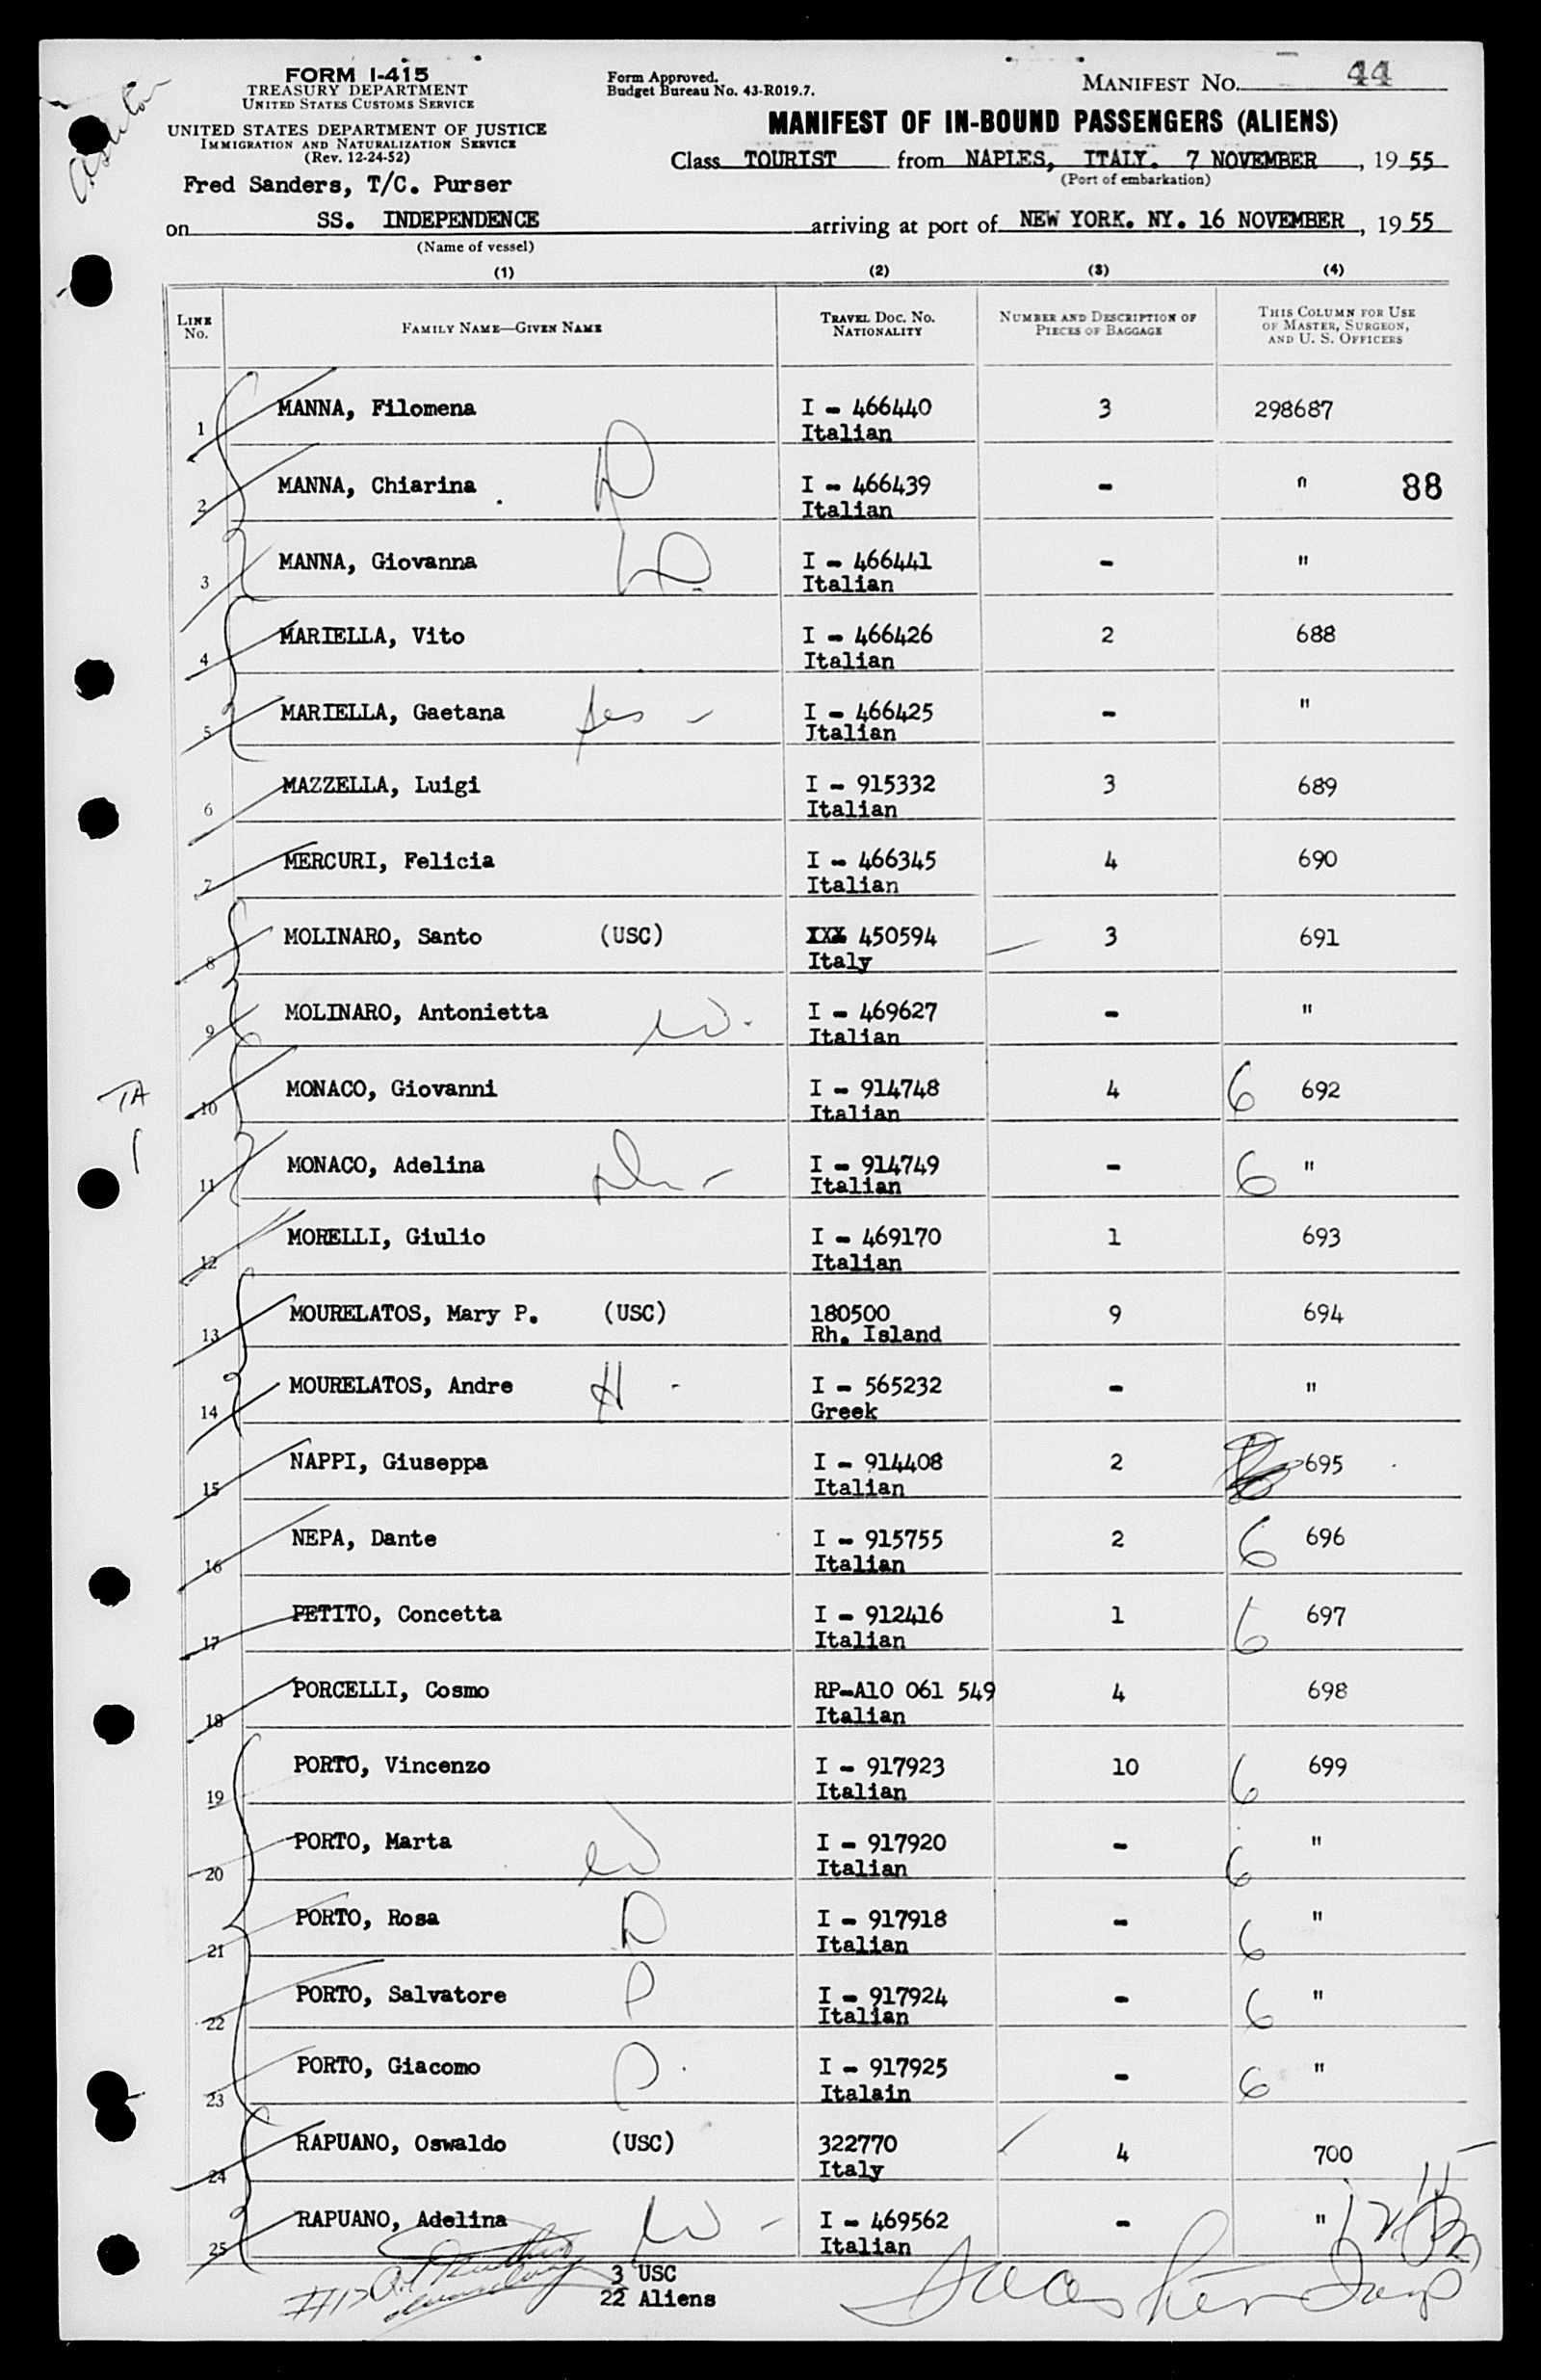 FORM I-415
TREASURY DEPARTMENT
UNITED STATES CUSTOMS SERVICE
UNITED STATES DEPARTMENT OF JUSTICE
IMMIGRATION AND NATURALIZATION SERVICE
(Rev. 12-24-52)
Form Approved.
Budget Bureau No. 43-R019.7.
MANIFEST NO. 44
MANIFEST OF IN-BOUND PASSENGERS (ALIENS)
Class TOURIST from NAPLES, ITALY. 7 NOVEMBER, 19 55
(Port of embarkation)
Fred Sanders, T/C. Purser
on SS. INDEPENDENCE arriving at port of NEW YORK. NY. 16 NOVEMBER, 19 55
(Name of vessel)
(1) (2) (3) (4)
LINE No. FAMILY NAME—GIVEN NAME TRAVEL DOC. NO. NATIONALITY NUMBER AND DESCRIPTION OF PIECES OF BAGGAGE THIS COLUMN FOR USE OF MASTER, SURGEON, AND U. S. OFFICERS
1 MANNA, Filomena I - 466440 3 298687
Italian
2 MANNA, Chiarina I - 466439 - " 88
Italian
3 MANNA, Giovanna I - 466441 - "
Italian
4 MARIELLA, Vito I - 466426 2 688
Italian
5 MARIELLA, Gaetana I - 466425 - "
Italian
6 MAZZELLA, Luigi I - 915332 3 689
Italian
7 MERCURI, Felicia I - 466345 4 690
Italian
8 MOLINARO, Santo (USC) XXX 450594 3 691
Italy
9 MOLINARO, Antonietta W. I - 469627 - "
Italian
TA
10 MONACO, Giovanni I - 914748 4 6 692
Italian
11 MONACO, Adelina I - 914749 - 6 "
Italian
12 MORELLI, Giulio I - 469170 1 693
Italian
13 MOURELATOS, Mary P. (USC) 180500 9 694
Rh. Island
14 MOURELATOS, Andre H - I - 565232 - "
Greek
15 NAPPI, Giuseppa I - 914408 2 695
Italian
16 NEPA, Dante I - 915755 2 6 696
Italian
17 PETITO, Concetta I - 912416 1 6 697
Italian
18 PORCELLI, Cosmo RP-A10 061 549 4 698
Italian
19 PORTO, Vincenzo I - 917923 10 6 699
Italian
20 PORTO, Marta W I - 917920 - 6 "
Italian
21 PORTO, Rosa D I - 917918 - 6 "
Italian
22 PORTO, Salvatore P I - 917924 - 6 "
Italian
23 PORTO, Giacomo I - 917925 - 6 "
Italain
24 RAPUANO, Oswaldo (USC) 322770 4 700
Italy
25 RAPUANO, Adelina W - I - 469562 - "
Italian
3 USC
22 Aliens